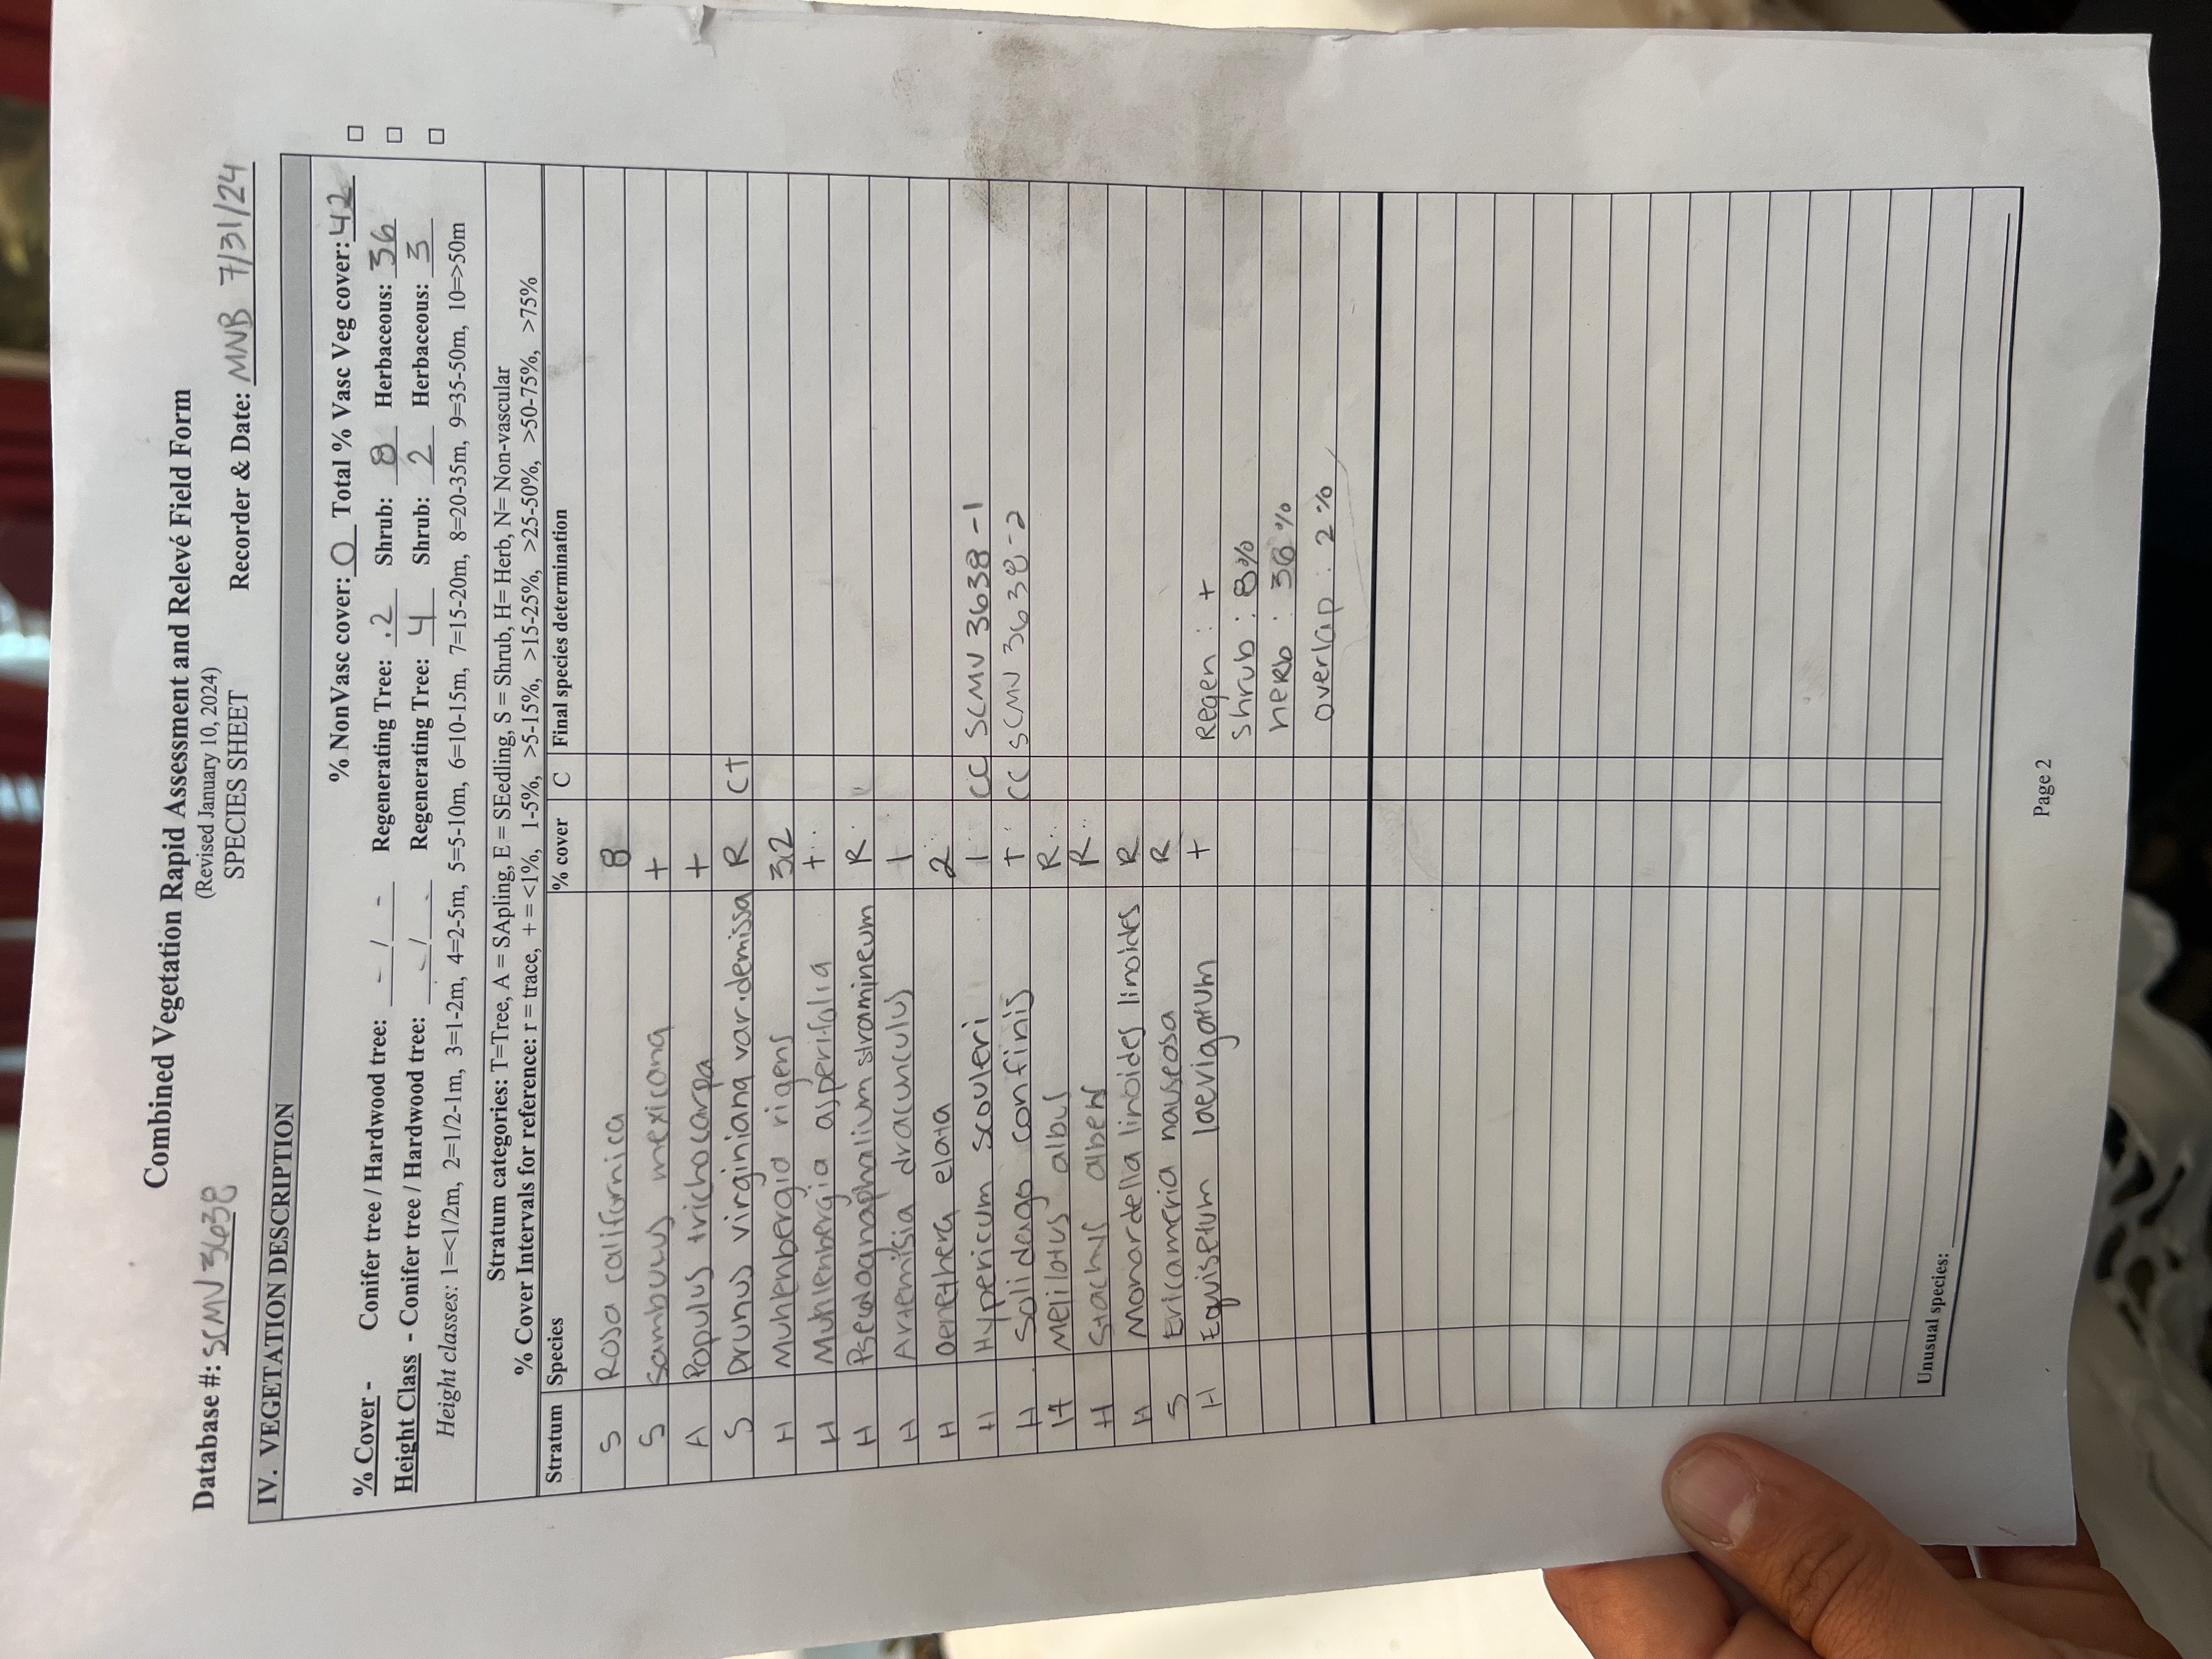 Combined Vegetation Rapid Assessment and Relevé Field Form
(Revised January 10, 2024)
Database #: SCMV 3638 SPECIES SHEET Recorder & Date: MNB 7/31/24
IV. VEGETATION DESCRIPTION
% NonVasc cover: 0 Total % Vasc Veg cover: 42 □
% Cover - Conifer tree / Hardwood tree: - / - Regenerating Tree: .2 Shrub: 8 Herbaceous: 36 □
Height Class - Conifer tree / Hardwood tree: - / - Regenerating Tree: 4 Shrub: 2 Herbaceous: 3 □
Height classes: 1=<1/2m, 2=1/2-1m, 3=1-2m, 4=2-5m, 5=5-10m, 6=10-15m, 7=15-20m, 8=20-35m, 9=35-50m, 10=>50m
Stratum categories: T=Tree, A = SApling, E = SEedling, S = Shrub, H= Herb, N= Non-vascular
% Cover Intervals for reference: r = trace, + = <1%, 1-5%, >5-15%, >15-25%, >25-50%, >50-75%, >75%
Stratum Species % cover C Final species determination
S Rosa californica 8
S Sambucus mexicana +
A Populus trichocarpa +
S Prunus virginiana var. demissa R CT
H Muhlenbergia rigens 32
H Muhlenbergia asperifolia +
H Pseudognaphalium stramineum R
H Artemisia dracunculus 1
H Oenethera elata 2
H Hypericum scouleri 1 CC SCMV 3638-1
H Solidengo confinis + CC SCMV 3638-2
H Melilotus albus R
H Stachys albens R
H Monardella linoides linoides R
S Ericameria nauseosa R
H Equisetum laevigatum + Regen : +
Shrub : 8%
herb : 36 %
overlap : 2 %
Unusual species:
Page 2